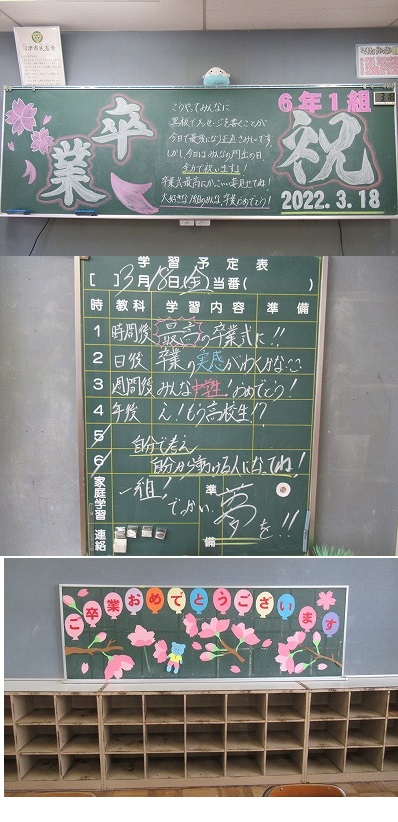 沼津市民憲章
卒業
こうやってみんなに
黒板でメッセージを書くことが
今日で最後になり正直さみしいです。
しかし、今日はみんなの門出の日
全力で祝います!
卒業式最高にかっこいい姿見せてね!
大好きな1組のみんな、卒業おめでとう!
6年1組
祝
2022.3.18
学習予定表
[ ]3月18日(金)当番( )
時 教科 学習内容 準備
1 時間後 最高の卒業式に!!
2 日後 卒業の実感がわくかな…
3 週間後 みんな中学生!おめでとう!
4 年後 え!もう高校生!?
5 自分で考え
6 自分から動ける人になってね!
家庭学習 一組! でっかい 準備 夢を!!
連絡
ご卒業おめでとうございます